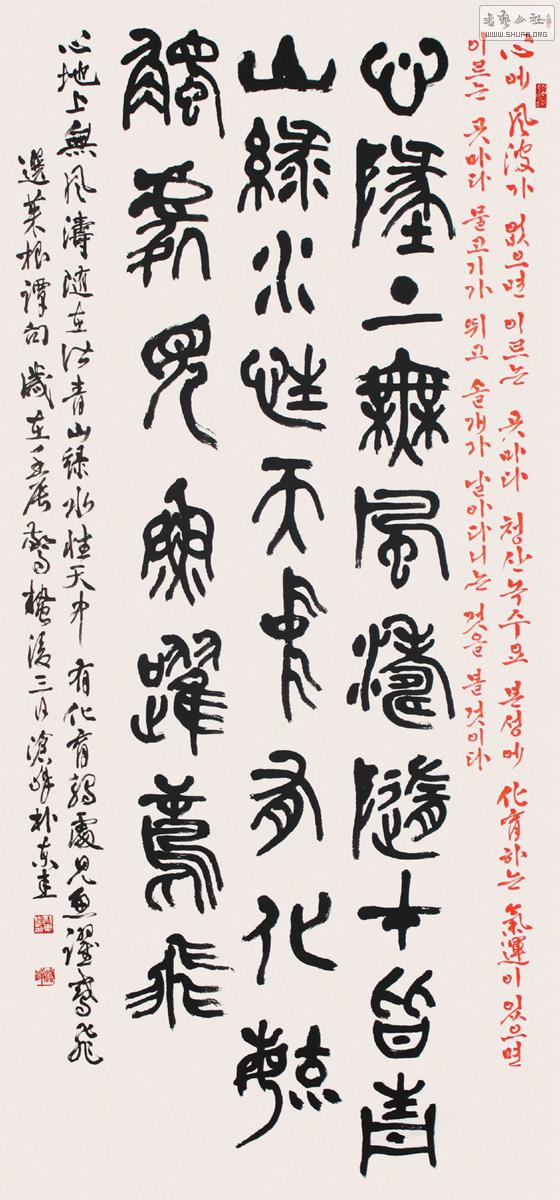 心에 風波가 없으면 이르는 곳마다 청산녹수요 본성에 化育하는 氣運이 있으면
이르는 곳마다 물고기가 뛰고 솔개가 날아다니는 것을 볼것이다
心地上無風濤隨在皆青
山綠水性天中有化育
觸處見魚躍鳶飛
心地上無風濤隨在皆青山綠水性天中有化育觸處見魚躍鳶飛
選菜根譚句 歲在壬辰驚蟄後三日 滄峰 朴東圭
WWW.SHUFA.ORG